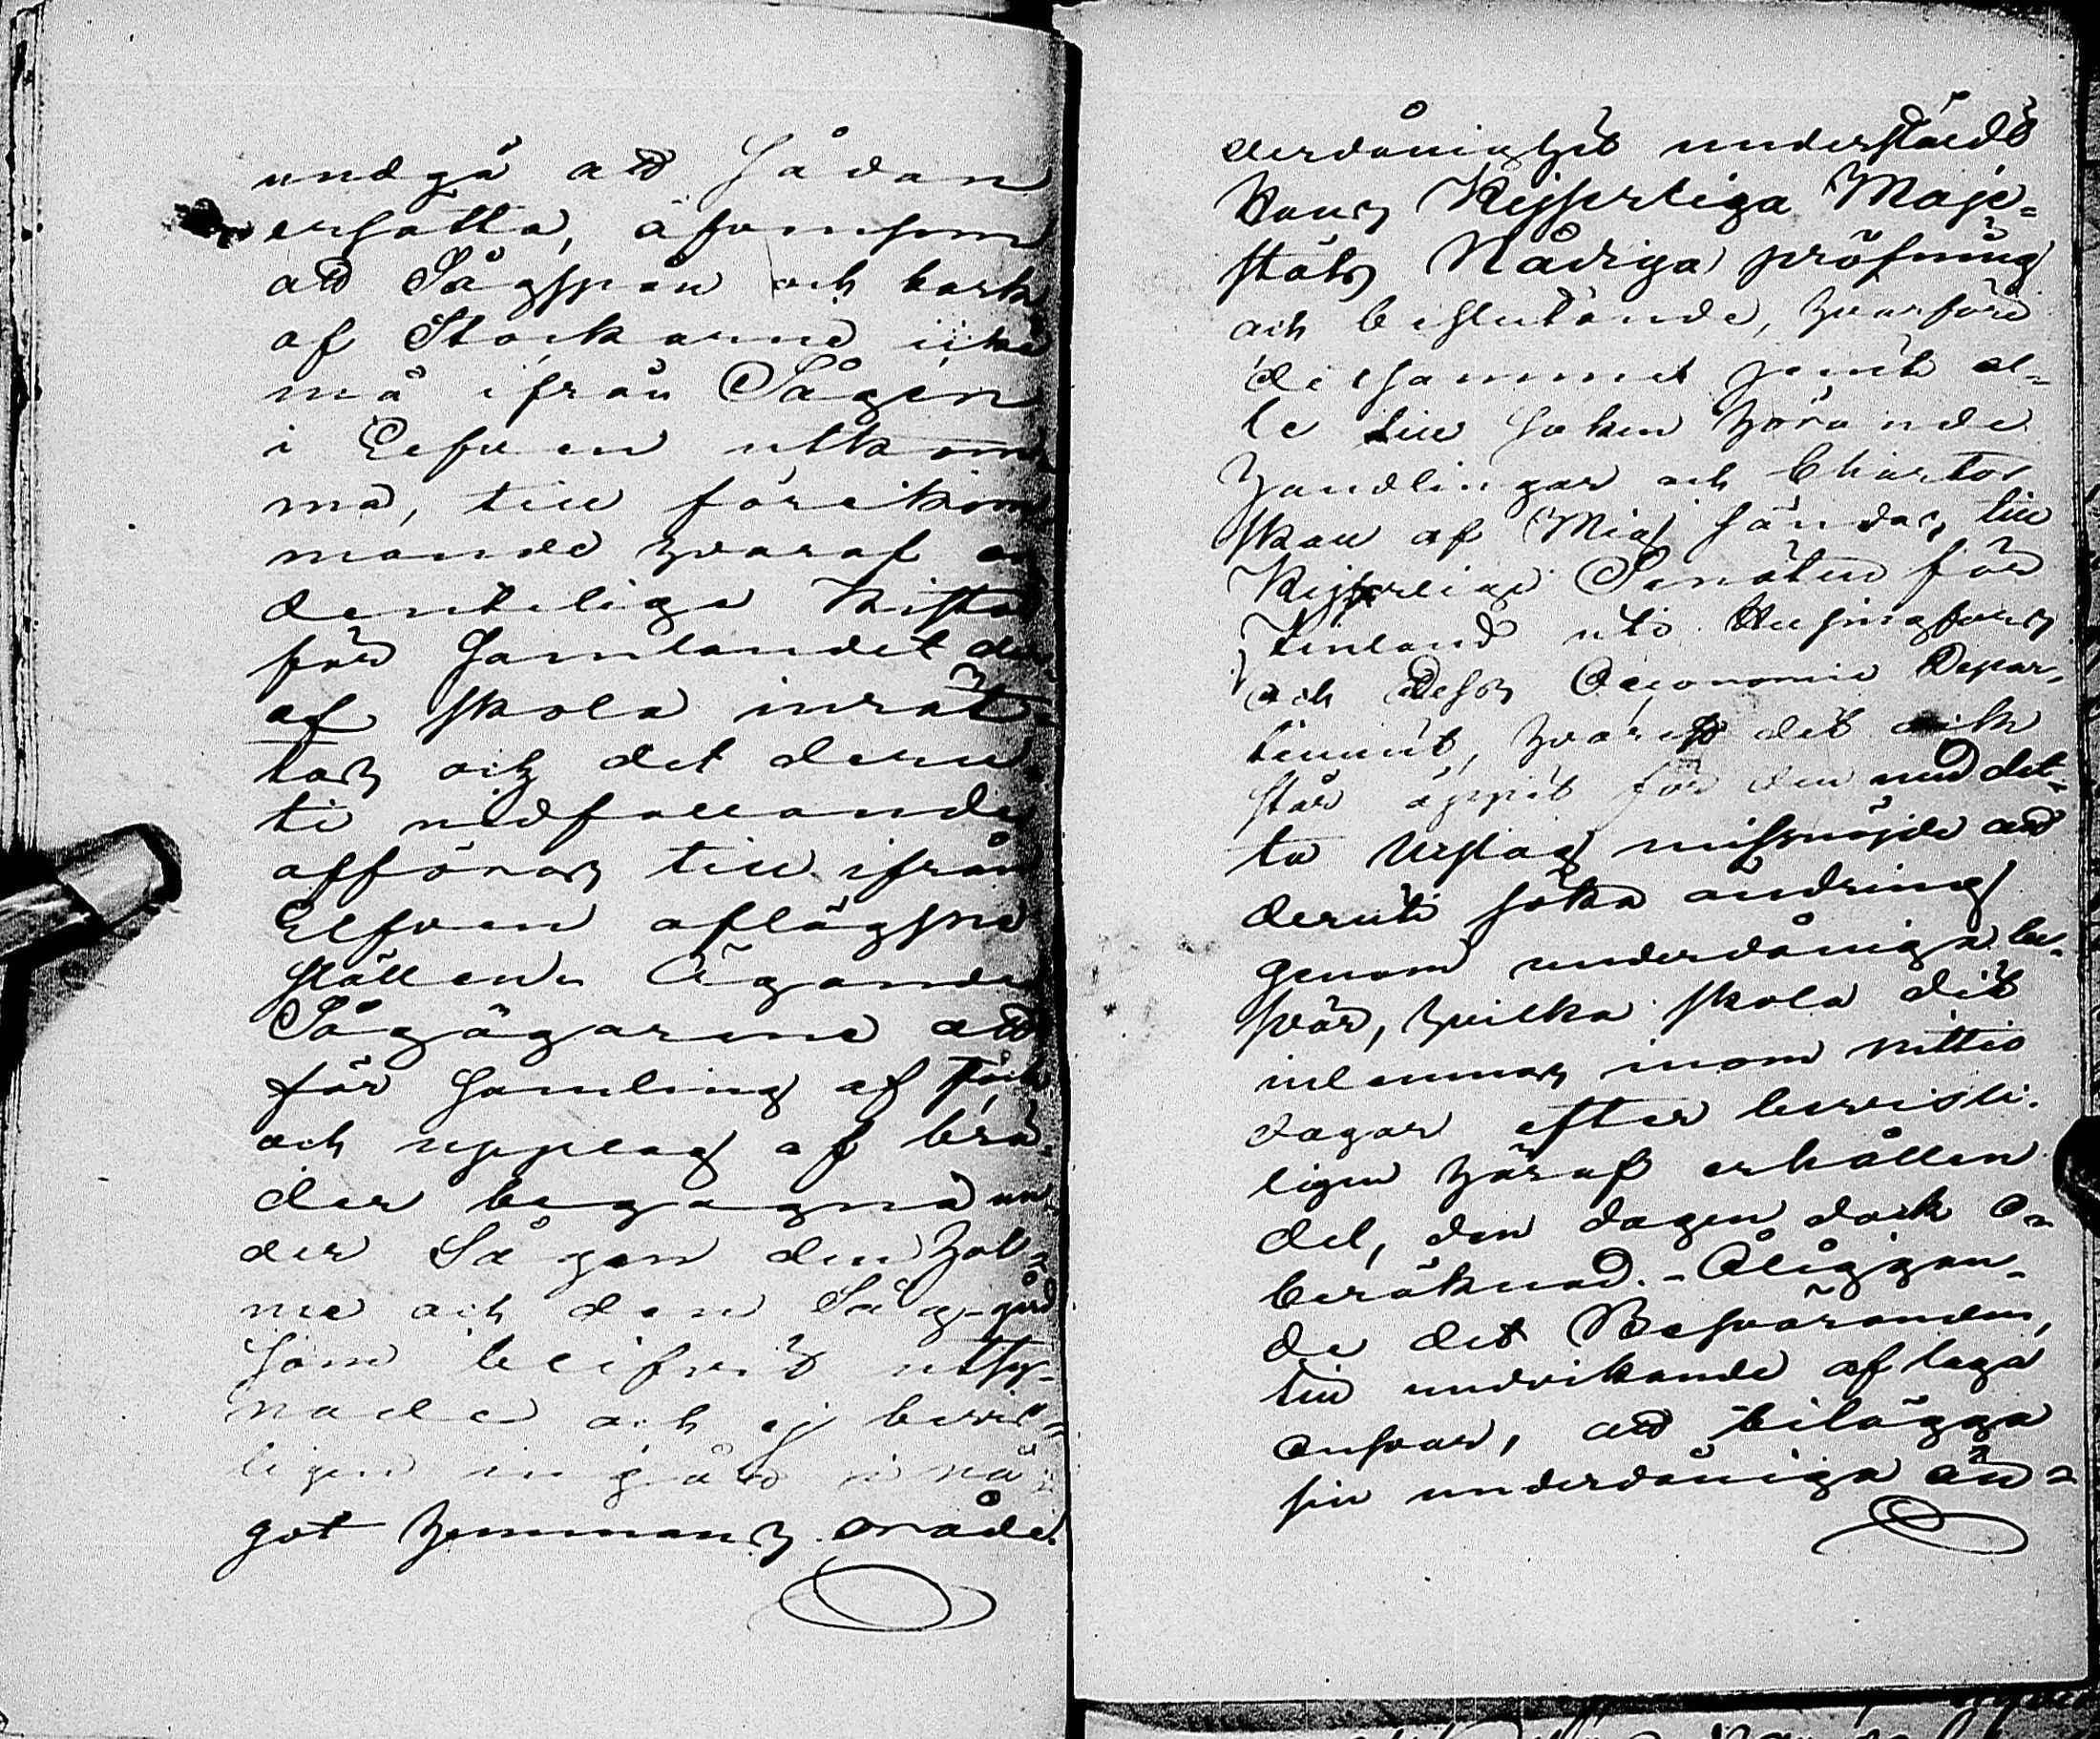 undgå att sådan
ersätta, äfvensom
att Sågspån och bark
af Stockarne icke
må ifrån Sågen
i Elfven utkom-
ma, till förekom-
mande hvaraf or-
denteliga Kistor
för samlandet der-
af skola inrät-
tas och det deru-
ti nedfallande
afföras till ifrån
Elfven aflägsne
ställen. Ägande
Sågägarene att
för samling af stock
och upplag af brä-
der begagna un-
der Sågen den hol-
me och den Såg-gård
som blifvit utsy-
nade och ej bevis-
ligen ingår i nå-
got hemmans område.
derdånighet understäldt
Hans Kejserliga Maje-
stäts Nådiga pröfning
och beslutande, hvarföre
detsamma jemte al-
le till saken hörande
handlingar och Chartor
skall af Mig sändas till
Kejserliga Senaten för
Finland uti Helsingfors
och Dess Oeconomie Depar-
tement, hvarest det och
står öppet för den med det-
ta Utslag missnöjde att
deruti söka ändring
genom underdåniga be-
svär, hvilka skola dit
inlemnas inom nittio
dagar efter bevisli-
ligen häraf erhållen
del, den dagen dock o-
beräknad. - Åliggan-
de det Besväranden,
till undvikande af laga
ansvar, att bilägga
sin underdåniga an-